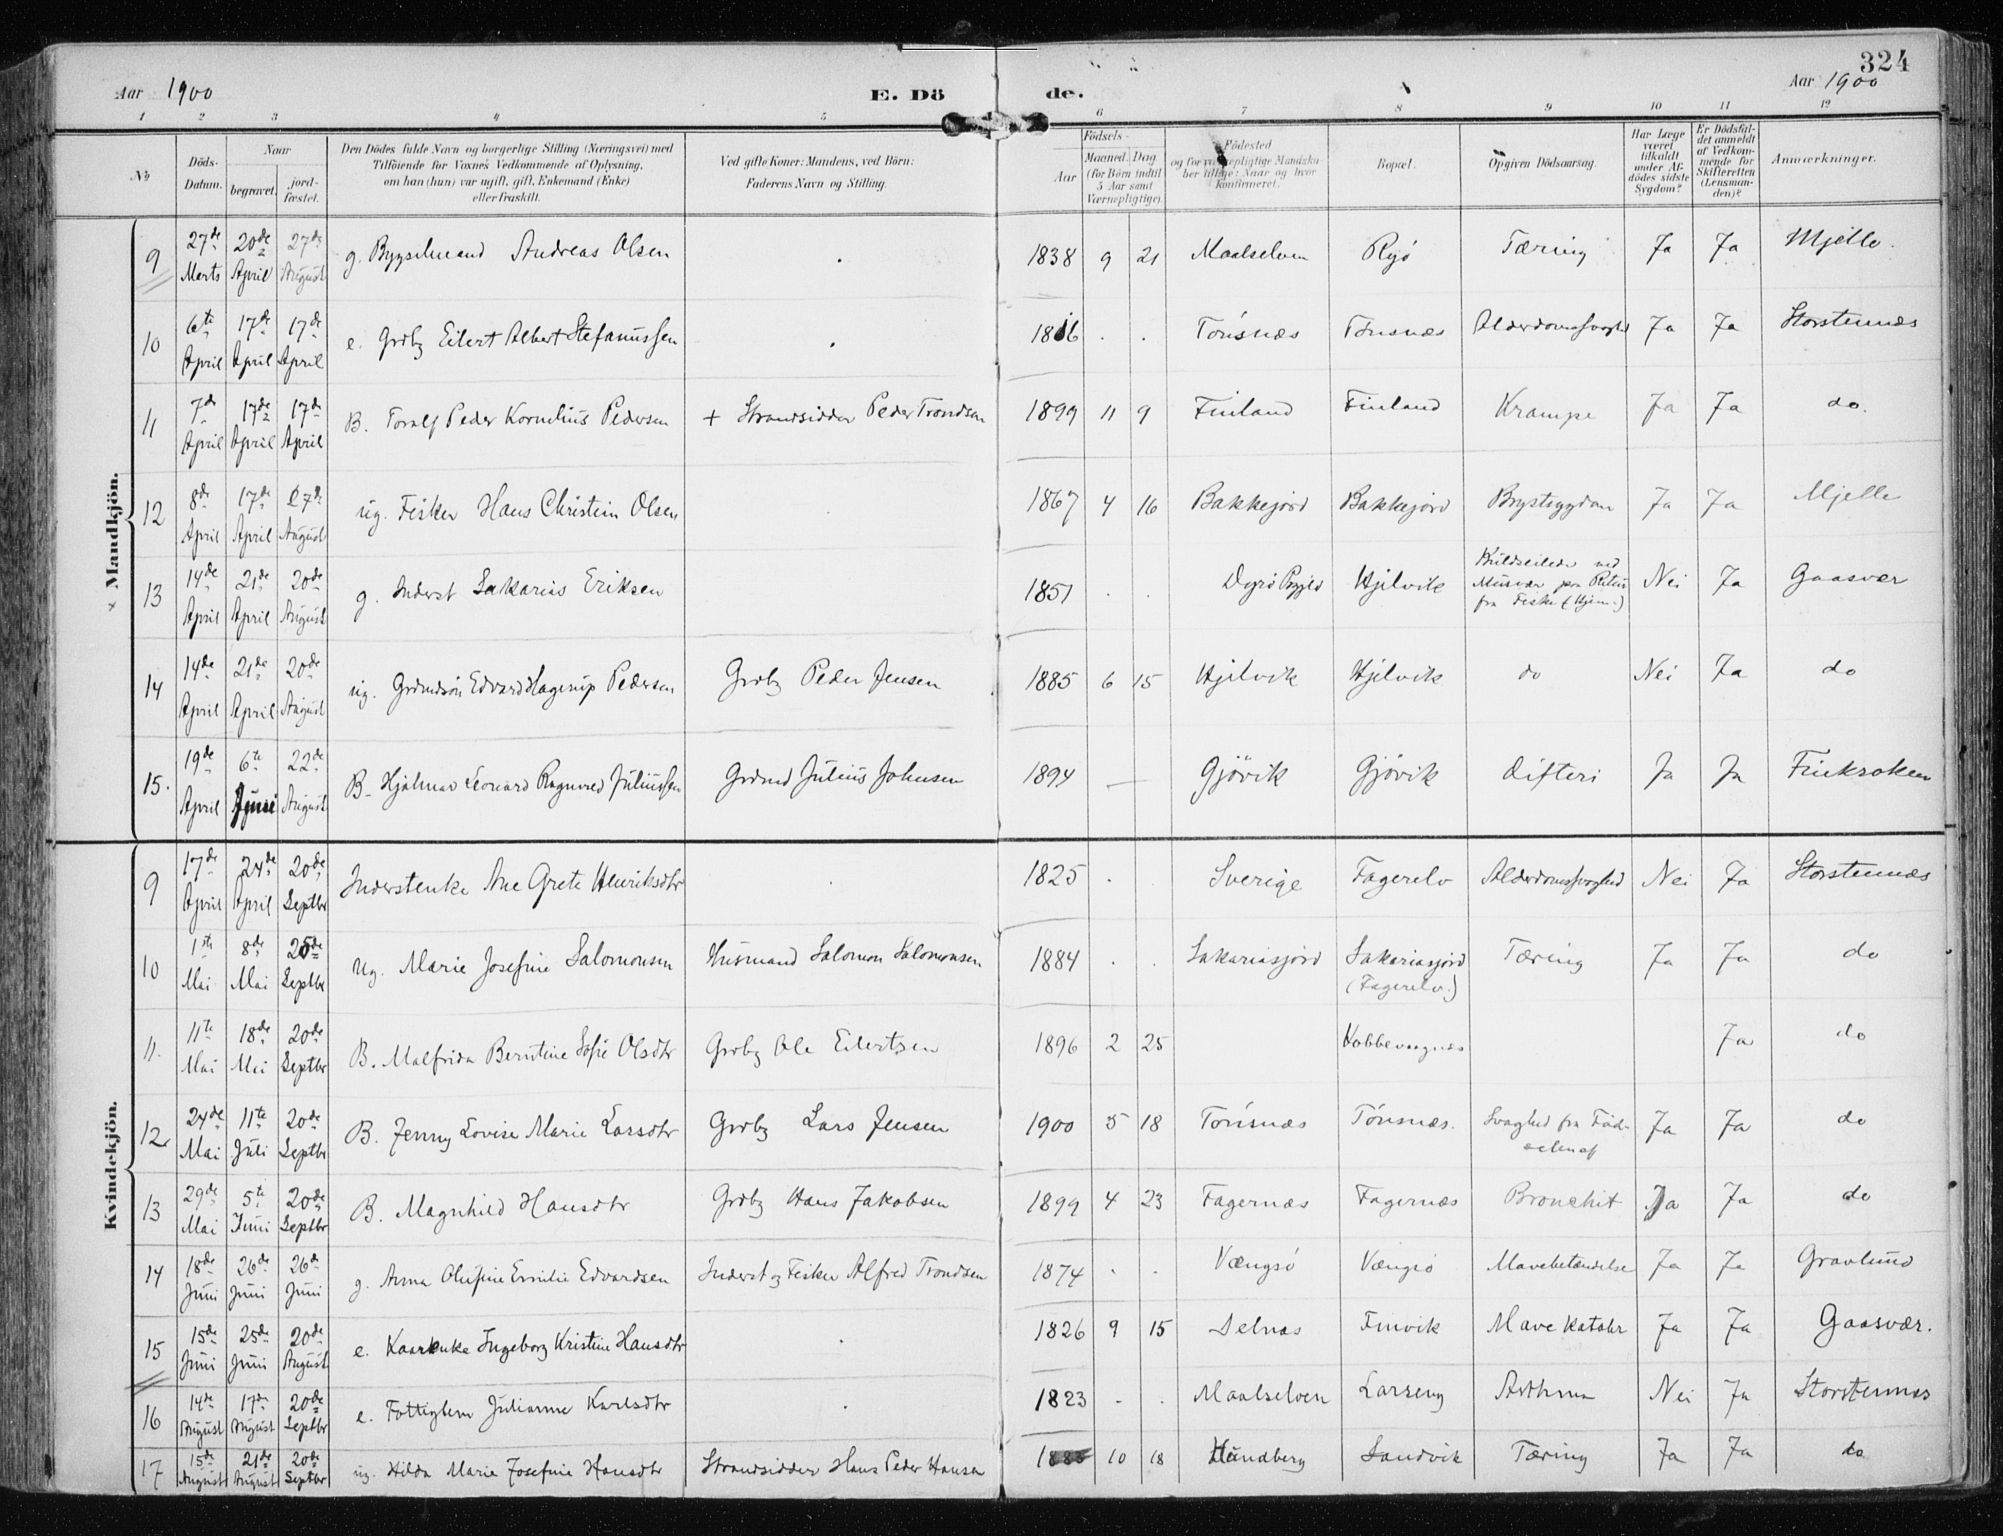 324
Aar 1900 E. Dö de. Aar 1900
1 2 3 4 5 6 7 8 9 10 11 12
No Döds-Datum. Naar begravet. jordfæstet. Den Dödes fulde Navn og borgerlige Stilling (Næringsvei) med Tilföiende for Voxnes Vedkommende af Oplysning, om han (hun) var ugift, gift, Enkemand (Enke) eller fraskilt. Ved gifte Koner: Mandens, ved Börn: Faderens Navn og Stilling. Födsels- Aar Maaned. Dag (for Börn indtil 5 Aar samt Værnepligtige). Födested og for værnepligtige Mandskaber tillige: Naar og hvor konfirmeret. Bopæl. Opgiven Dödsaarsag. Har Læge været tilkaldt under Afdödes sidste Sygdom? Er Dödsfaldet anmeldt af Vedkommende for Skifteretten (Lensmanden)? Anmærkninger.
Mandkjön.
9 27de Marts 20de April 27de August g. Bygselmand Andreas Olsen 1838 9 21 Maalselven Ryö Tæring Ja Ja Mjelle.
10 6te April 17de April 17de April e. Grdbg Eilert Albert Stefanussen 1816 . . Tönsnæs Tönsnæs Alderdomssvaghd Ja Ja Storstennæs
11 7de April 17de April 17de April B. Toralf Peder Kornelius Pedersen + Strandsidder Peder Trondsen 1899 11 9 Finland Finland Krampe Ja Ja do.
12 8de April 17de April 27de August ug. Fisker Hans Christein Olsen 1867 4 16 Bakkejord Bakkejord Brystsygdom Ja Ja Mjelle
13 14de April 21de April 20de August g. Inderst Sakarias Eriksen 1851 . . Dyrö Hjilvik Kuldseilede ved Musvær paa Retur fra Fiske (Hjem.) Nei Ja Gaasvær
14 14de April 21de April 20de August ug. Grdmdsön Edvard Hagerup Pedersen Grdbg Peder Jensen 1885 6 15 Hjilvik Hjilvik do Nei Ja do
15. 19de April 6te Juni 22de August B. Hjalmar Leonard Ragnvald Juliussen Grdmd Julius Johnsen 1894 — Gjövik Gjövik Difteri Ja Ja Finkroken
Kvindekjön.
9 17de April 24de April 20de Septbr Inderstenke Ane Grete Henriksdtr 1825 . . Sverige Fagerelv Alderdomssvaghed Nei Ja Storstennæs
10 1ste Mai 8de Mai 25de Septbr Ug. Marie Josefine Salomonsen Husmand Salomon Salomonsen 1884 . . Sakariasjord Sakariasjord (Fagerelv.) Tæring Ja Ja do
11. 11te Mai 18de Mai 20de Septbr B. Malfrida Berntine Sofie Olsdtr Grdbg Ole Eilertsen 1896 2 25 Kobbevaagnæs Ja do
12 24de Mai 11te Juli 20de Septbr B. Jenny Lovise Marie Larsdtr Grdbg Lars Jensen 1900 5 18 Tönsnæs Tönsnæs. Svaghed fra Födselen af Ja Ja do
13 29de Mai 5te Juni 20de Septbr B. Magnhild Hansdtr Grdbg Hans Jakobsen 1899 4 23 Fagernæs Fagernæs Bronchit Ja Ja do
14 18de Juni 26de Juni 26de Juni g. Anna Olufine Emilie Edvardsen Inderst og Fisker Alfred Trondsen 1874 . . Vængsö Vængsö Mavebetændelse Ja Ja Gravlund
15 15de Juni 25de Juni 20de August e. Kaarenke Ingeborg Kristine Hansdtr 1826 9 15 Selnæs Finvik Mave Katahr Ja Ja Gaasvær.
16 14de August 17de August 20de Septbr e. Fattiglem Julianne Karlsdtr 1823 . . Maalselven Larseng Asthma Nei Ja Storstennæs
17 15de August 21de August 20de Septbr ug. Hilda Marie Josefine Hansdtr Strandsidder Hans Peder Hansen 10 18 Hundberg Sandvik Tæring Ja Ja do